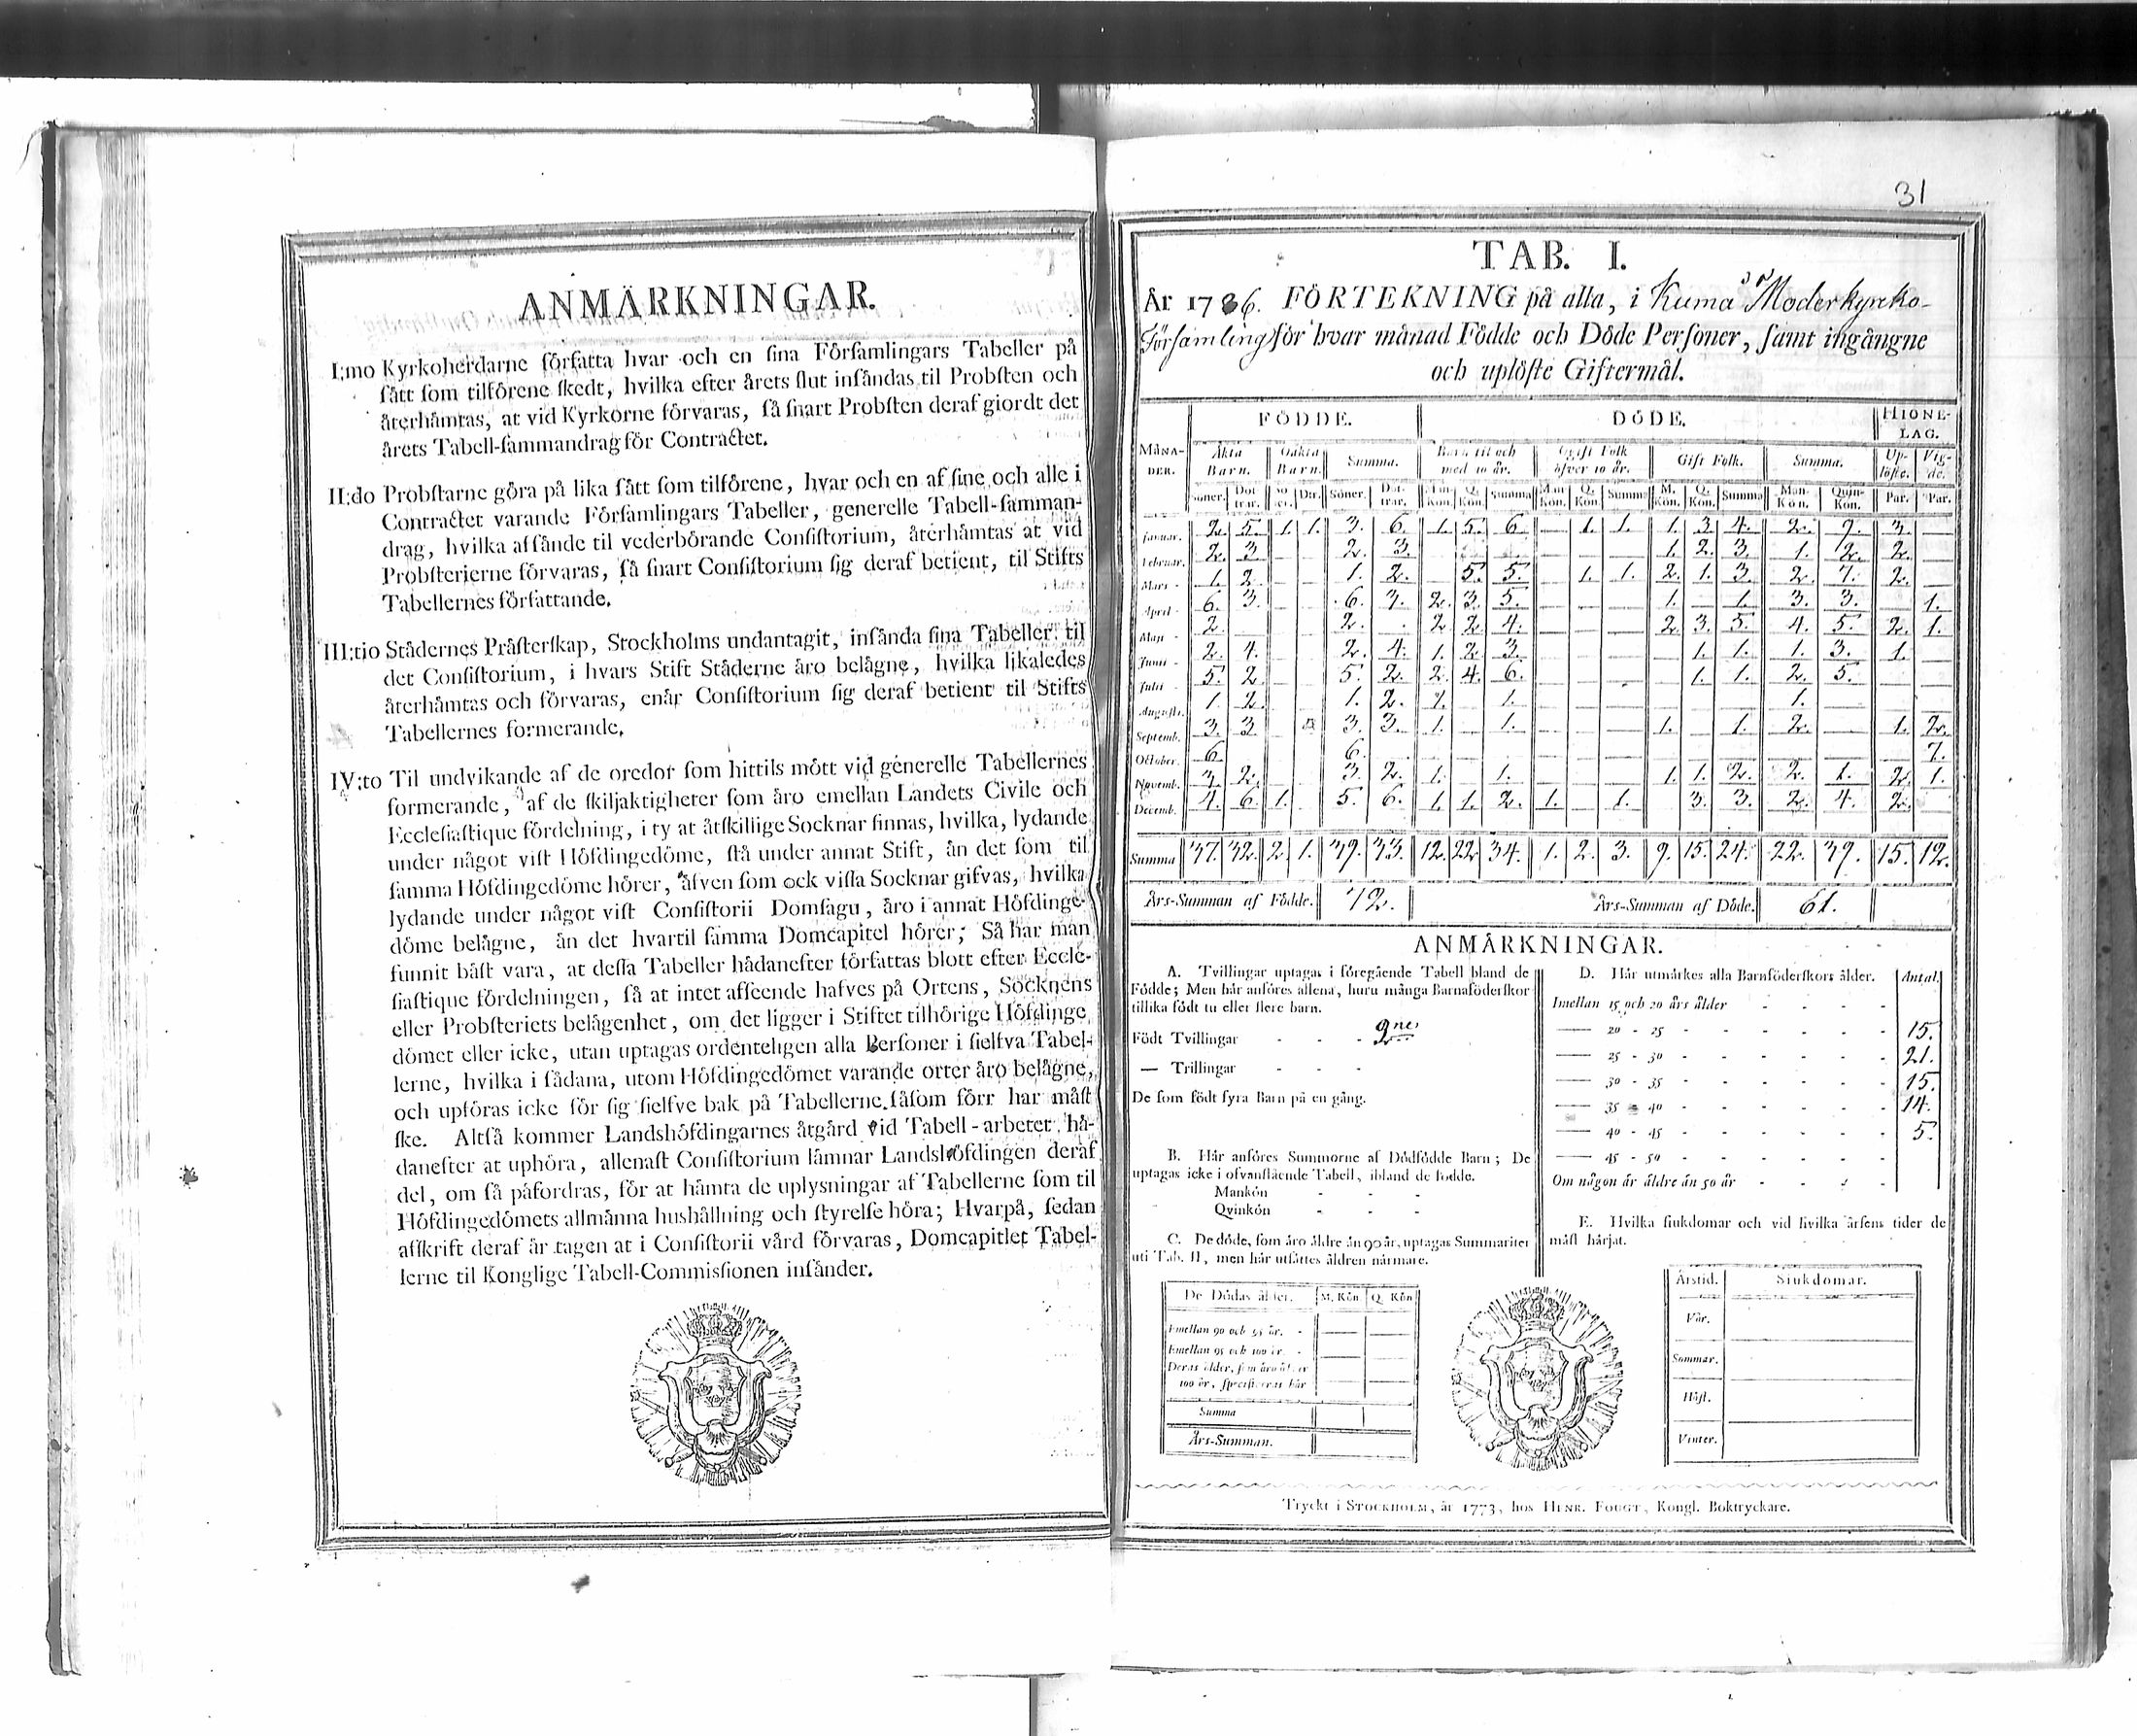 ANMÄRKNINGAR.
I:mo Kyrkoherdarne författa hvar och en sina Församlingars Tabeller på
sått som tilförene skedt, hvilka efter årets slut insåndas til Probsten och
återhåmtas, at vid Kyrkorne förvaras, så snart Probsten deraf giordt det
årets Tabell-sammandrag för Contractet.
II:do Probstarne göra på lika sått som tilförene, hvar och en af sine och alle i
Contractet varande Församlingars Tabeller, generelle Tabell-samman-
drag, hvilka afsånde til vederbörande Consistorium, återhåmtas at vid
Probsterierne förvaras, så snart Consistorium sig deraf betient, til Stifts
Tabellernes författande.
III:tio Stådernes Pråsterskap, Stockholms undantagit, insånda sina Tabeller til
det Consistorium, i hvars Stift Ståderne åro belågne, hvilka likaledes
återhåmtas och förvaras, enår Consistorium sig deraf betient til Stifts
Tabellernes formerande.
IV:to Til undvikande af de oredor som hittils mött vid generelle Tabellernes
formerande, af de skiljaktigheter som åro emellan Landets Civile och
Ecclesiastique fördelning, i ty at åtskillige Socknar finnas, hvilka, lydande
under något vist Höfdingedöme, stå under annat Stift, ån det som til
samma Höfdingedöme hörer, åfven som ock vissa Socknar gifvas, hvilka
lydande under något vist Consistorii Domsagu, åro i annat Höfdinge-
döme belågne, ån det hvartil samma Domcapitel hörer; Så har man
funnit båst vara, at dessa Tabeller hådanefter författas blott efter Eccle-
siastique fördelningen, så at intet afseende hafves på Ortens, Socknens
eller Probsteriets belågenhet, om det ligger i Stiftet tilhörige Höfdinge
dömet eller icke, utan uptagas ordenteligen alla Personer i sielfva Tabel-
lerne, hvilka i sådana, utom Höfdingedömet varande orter åro belågne,
och upföras icke för sig sielfve bak på Tabellerne såsom förr har måst
ske. Altså kommer Landshöfdingarnes åtgård vid Tabell-arbetet hå-
danefter at uphöra, allenast Consistorium låmnar Landshöfdingen deraf
del, om så påfordras, för at håmta de uplysningar af Tabellerne som til
Höfdingedömets allmånna hushållning och styrelse höra; Hvarpå, sedan
afskrift deraf år tagen at i Consistorii vård förvaras, Domcapitlet Tabel-
lerne til Konglige Tabell-Commissionen insånder.
31
TAB. I.
År 1786. FÖRTEKNING på alla, i Kumla Moderkyrko-
Församling för hvar månad Födde och Döde Personer, samt ingångne
och uplöste Giftermål.
MÅNA-DER. FÖDDE. DÖDE. HIONE-LAG.
Åkta Barn. Oåkta Barn. Summa. Barn til och med 10 år. Ogift Folk öfver 10 år. Gift Folk. Summa. Up-löste. Vig-de.
Söner. Döt trar. Sö ner. Dtr. Söner. Döt-trar. Man Kön. Q. Kön. Summa Man Kön. Q. Kön. Summa M. Kön. Q. Kön. Summa Man-Kön. Quin-Kön. Par. Par.
Januar. 2. 5. 1. 1. 3. 6. 1. 5. 6. — 1. 1. 1. 3. 4. 2. 9. 3. —
Februar. 2. 3. 2. 3. 1. 2. 3. 1. 2. 2. —
Mars 1. 2. 1. 2. 5. 5. — 1. 1. 2. 1. 3. 2. 7. 2. —
April 6. 3. 6. 3. 2. 3. 5. 1. — 1. 3. 3. — 1.
Maji 2. 2. 2. 2. 4. 2. 3. 5. 4. 5. 2. 1.
Junii 2. 4. 2. 4. 1. 2. 3. 1. 1. 1. 3. 1. —
Julii 5. 2. 5. 2. 2. 4. 6. 1. 1. 2. 5. —
Augusti. 1. 2. 1. 2. 1. 1. 1.
Septemb. 3. 3. 3. 3. 1. — 1. 1. — 1. 2. — 1. 2.
October. 6. 6. 7.
Novemb. 3. 2. 3. 2. 1. 1. 1. 1. 2. 2. 1. 2. 1.
Decemb. 4. 6. 1. 5. 6. 1. 1. 2. 1. — 1. 3. 3. 2. 4. 2.
Summa 37. 32. 2. 1. 39. 33. 12. 22. 34. 1. 2. 3. 9. 15. 24. 22. 39. 15. 12.
Års-Summan af Födde. 72. Års-Summan af Döde. 61.
ANMÄRKNINGAR.
A. Tvillingar uptagas i föregående Tabell bland de
Födde; Men hår anföres allena, huru många Barnaföderskor
tillika födt tu eller flere barn.
Födt Tvillingar - - - 2ne
— Trillingar - - -
De som födt fyra Barn på en gång.
B. Hår anföres Summorne af Dödfödde Barn; De
uptagas icke i ofvanstående Tabell, ibland de födde.
Mankön - - -
Qvinkön - - -
C. De döde, som åro åldre ån 90 år, uptagas Summariter
uti Tab. II, men hår utsåttes åldren nårmare.
De Dödas ålder. M. Kön Q. Kön
Emellan 90 och 95 år. -
Emellan 95 och 100 år. -
Deras ålder, som åro öfver
100 år, specificeras hår
Summa
Års-Summan.
D. Hår utmårkes alla Barnföderskors ålder. Antal.
Imellan 15 och 20 års ålder
— 20 - 25 15.
— 25 - 30 21.
— 30 - 35 15.
— 35 - 40 14.
— 40 - 45 5.
— 45 - 50
Om någon år åldre ån 50 år
E. Hvilka siukdomar och vid hvilka årsens tider de
måst hårjat.
Årstid. Siukdomar.
Vår.
Sommar.
Höst.
Vinter.
Tryckt i STOCKHOLM, år 1773, hos HENR. FOUGT, Kongl. Boktryckare.